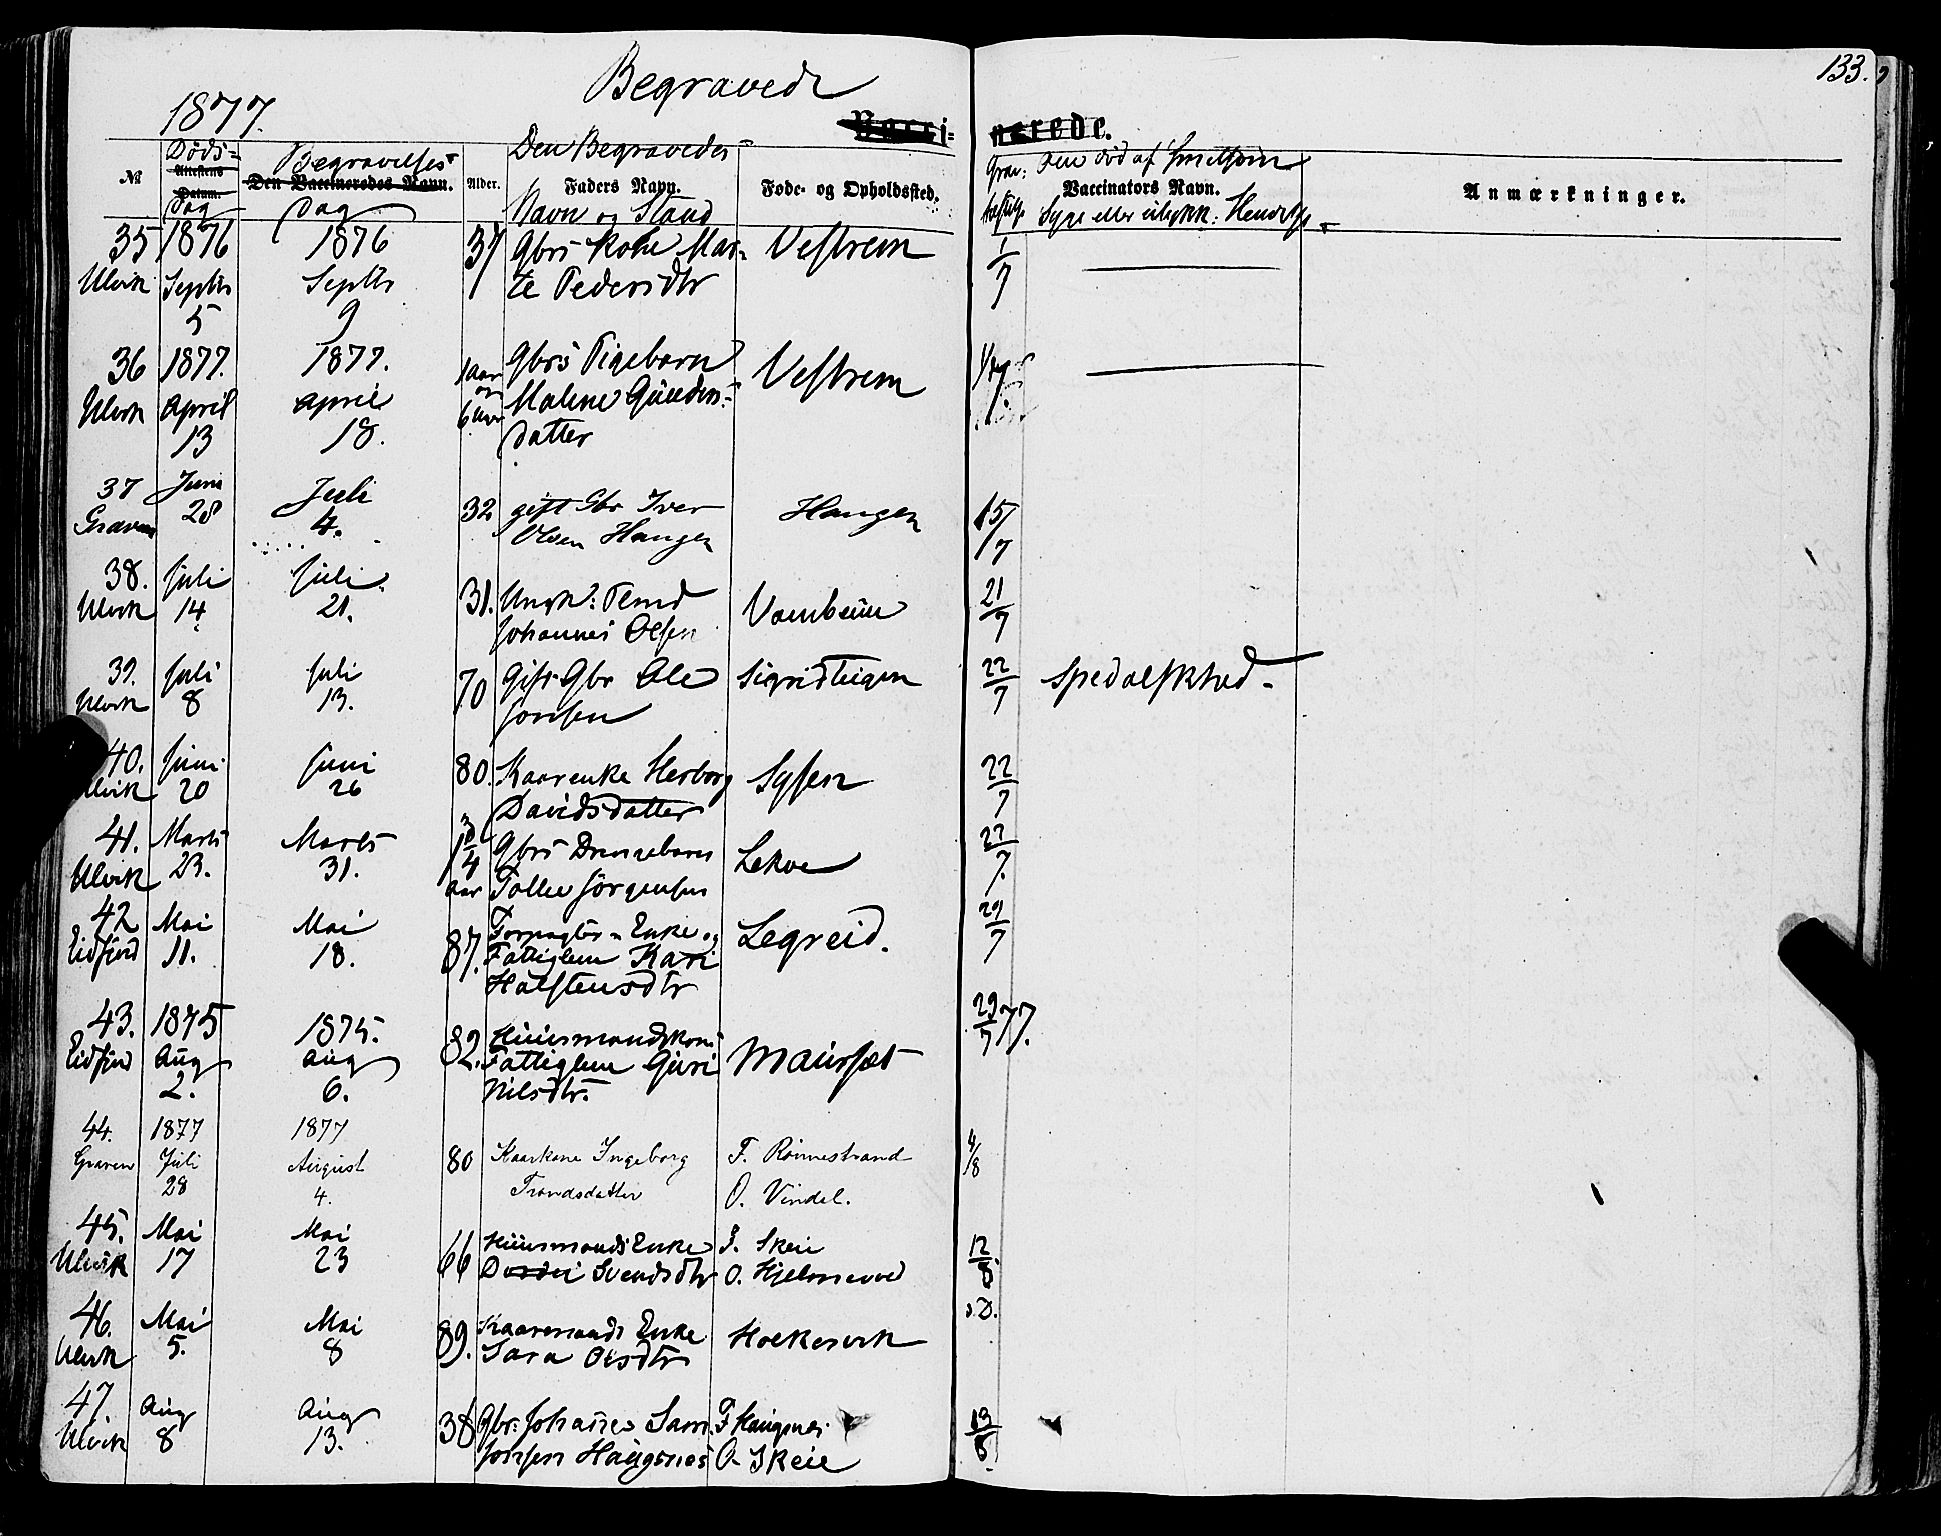 133.
Begravede
1877.
Vacci- nerede.
Døds- Begravelses- Den Begravedes
Attestens
№ Datum. Den Vaccineredes Navn. Alder. Faders Navn. Føde- og Opholdsted. Vaccinators Navn. Anmærkninger.
Dag Dag Navn og Stand Syge eller ulykk: Hendelse
35 1876 1876 37 Gbrs Kone Mar- Vestrem 1/7
Ulvik Septbr Septbr te Pedersdtr
5 9
36 1877. 1877. 1 Aar Gbrs Pigebarn Vestrem
Ulvik April April og 6 Malene
13 18. datter
37 Juni Juli 32 gift Gbr Iver Haugen 15/7
Graven 28 4. Olsen Haugen
38. Juli Juli 31. Ungk: 21/7
Ulvik 14 21. Johannes Olsen
39. Juli Juli 70 Gift Gbr Ole Sigridteigen 22/7 Spedalskhed.
Ulvik 8 13. Jonsen
40. Juni Juni 80. Kaarenke Herborg Sysen 22/7
Ulvik 20 26 Davidsdatter
41. Marts Marts 1 3/4 Gbrs Drengebarn Lekve 22/7.
Ulvik 23. 31. Aar Jørgensen
42 Mai Mai 87. Enke og Legreid. 29/7
Eidfjord 11. 18. Fattiglem Kari
Halstensdtr
43. 1875 1875. 82. Huusmandskone Maursæt 29/7 77.
Eidfjord Aug Aug Fattiglem Guri
2. 6. Nilsdtr.
44. 1877 1877 80 Kaarkone Ingeborg F. Rönnestrand 4/8
Graven Juli August Trondsdatter O. Vindal.
28 4.
45. Mai Mai 66 Huusmands Enke F. Skeie 12/8
Ulvik 17 23 Svendsdtr O. Hjelmevold
46. Mai Mai 89. Kaarmands Enke s.D.
Ulvik 5. 8 Sara Olsdtr
47. Aug Aug 38 Gbr: Johannes Sam- F Haugsnes 13/8
Ulvik 8 13. sonsen Haugsnes O. Skeie